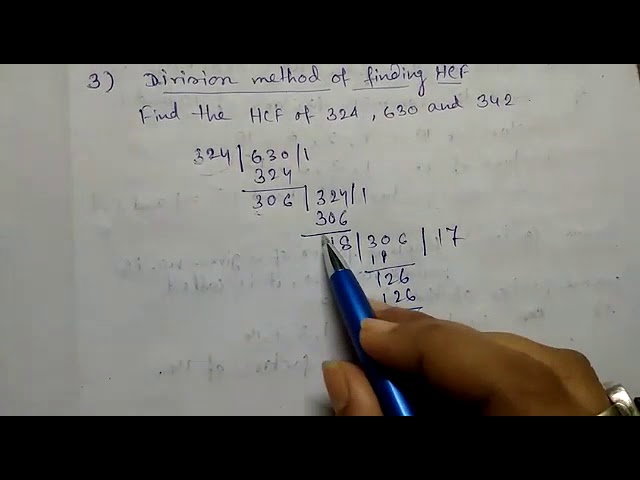 3) Division method of finding HCF
Find the HCF of 324, 630 and 342
324 | 630 | 1
324
306 | 324 | 1
306
18 | 306 | 17
126
126